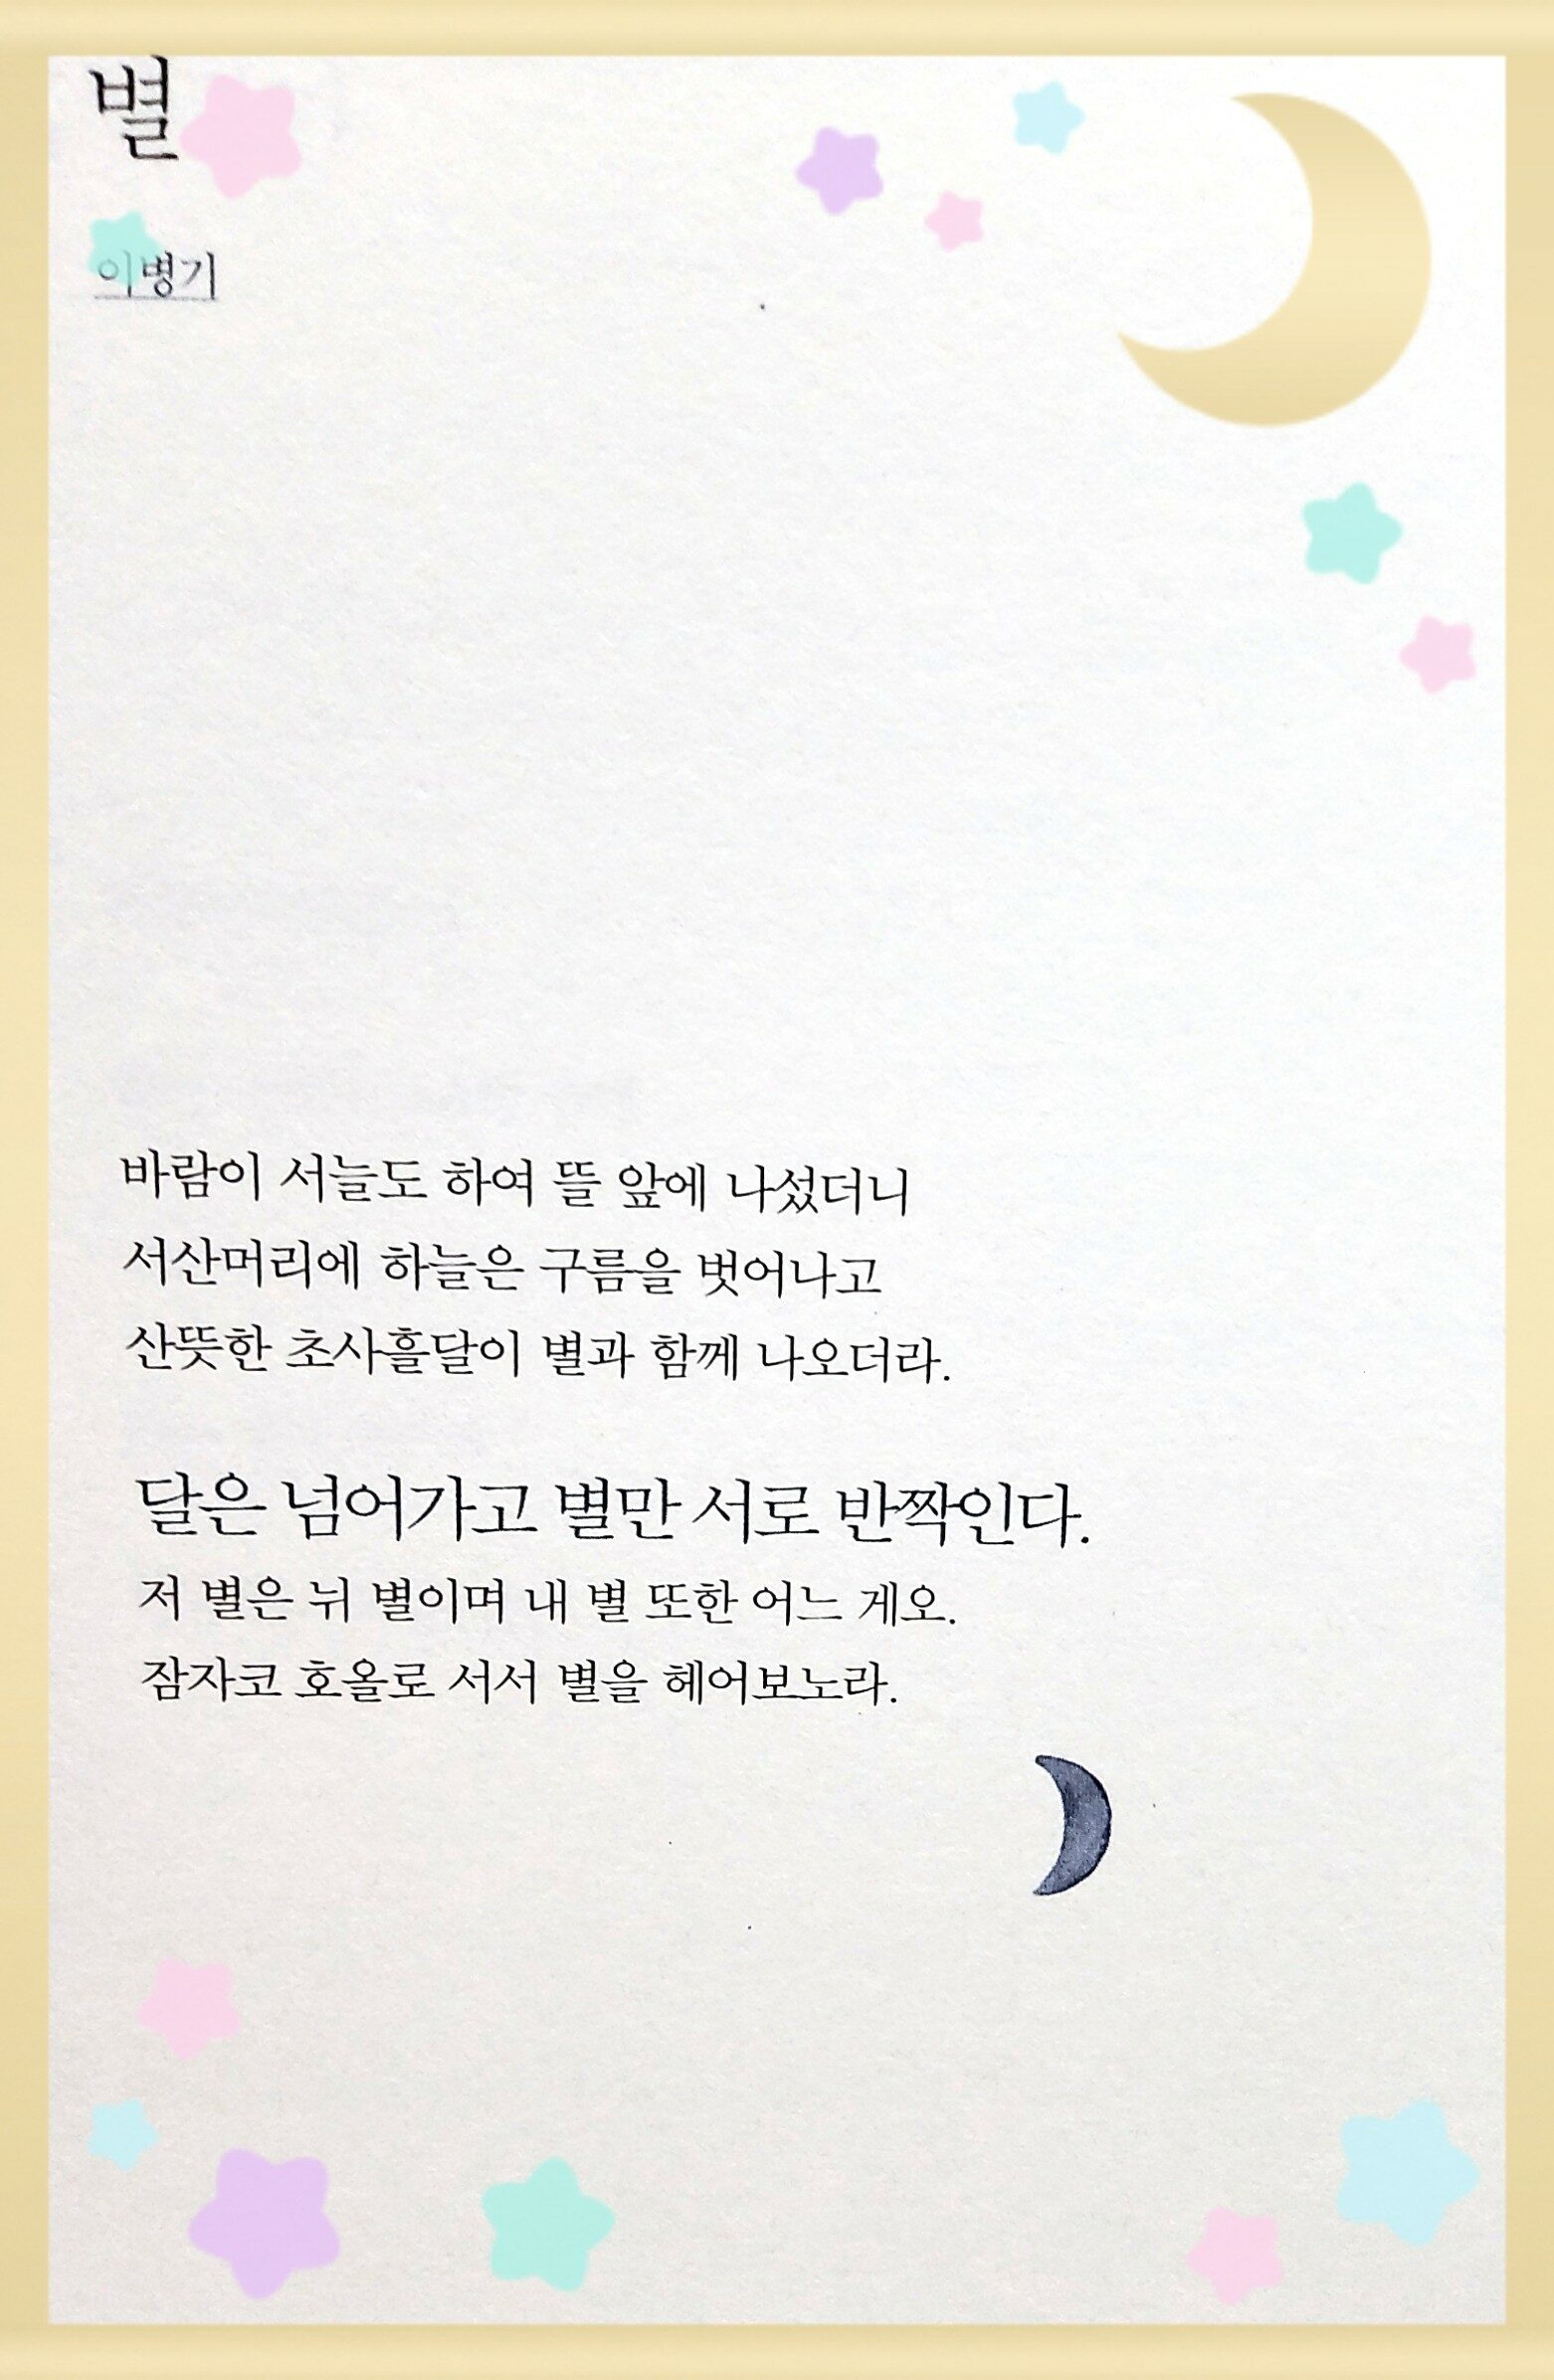 별
이병기
바람이 서늘도 하여 뜰 앞에 나섰더니
서산머리에 하늘은 구름을 벗어나고
산뜻한 초사흘달이 별과 함께 나오더라.
달은 넘어가고 별만 서로 반짝인다.
저 별은 뉘 별이며 내 별 또한 어느 게오.
잠자코 호올로 서서 별을 헤어보노라.